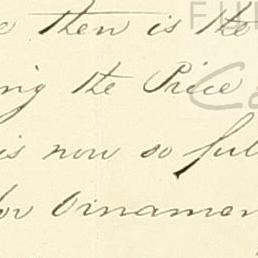 then is the
ing the Price
is now so full
for Ornamen